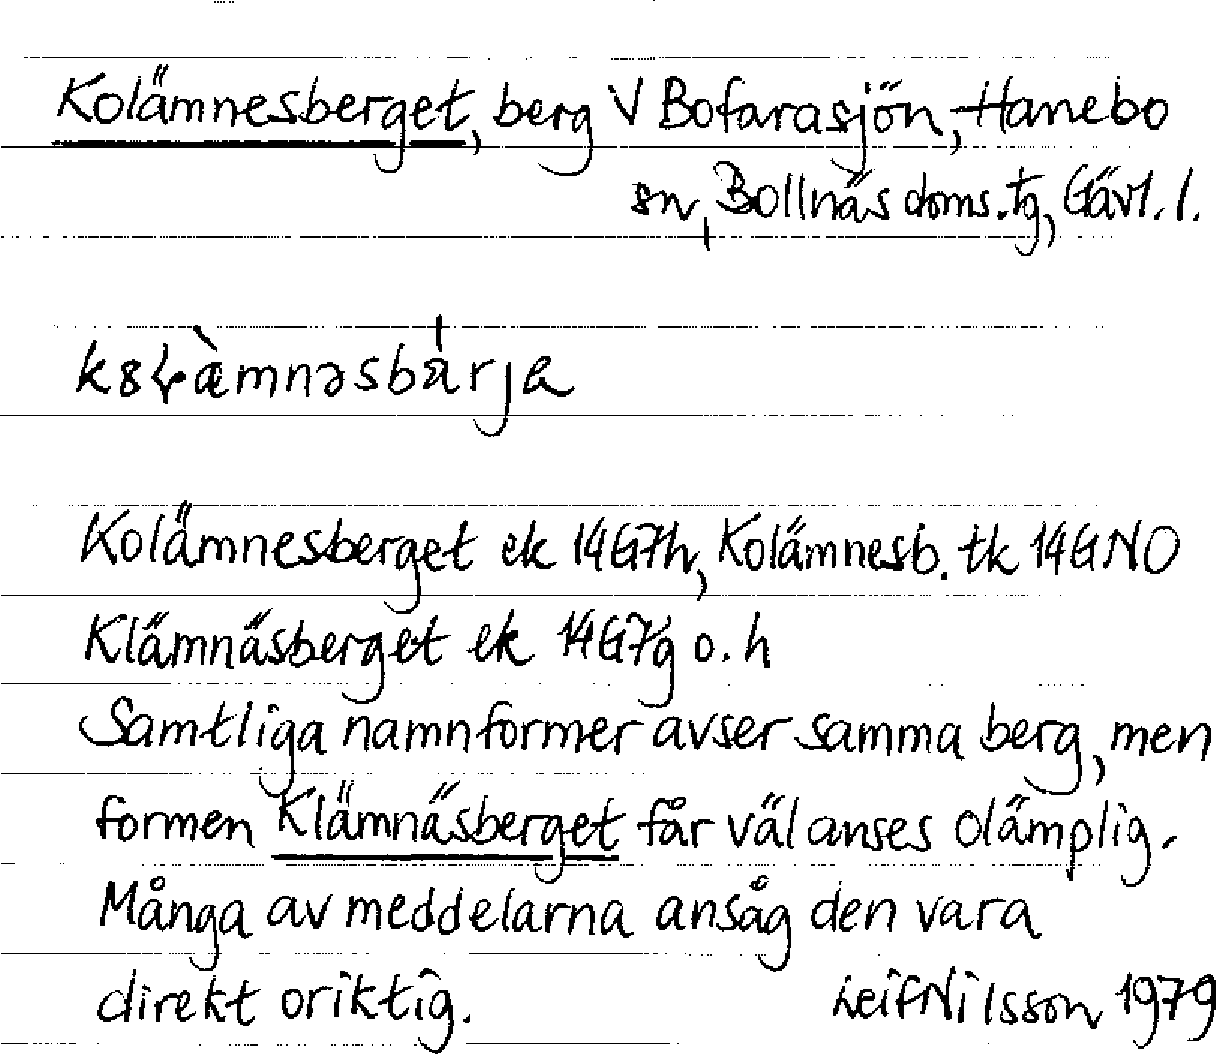 Kolämnesberget, berg V Bofarasjön, Hanebo
sn, Bollnäs doms. tg, Gävl. l.
Kolämnesberget ek 14G7h, Kolämnesb. tk 14G NO
Klämnäsberget ek 14G7g o. h
Samtliga namnformer avser samma berg, men
formen Klämnäsberget får väl anses olämplig.
Många av meddelarna ansåg den vara
direkt oriktig. Leif Nilsson 1979